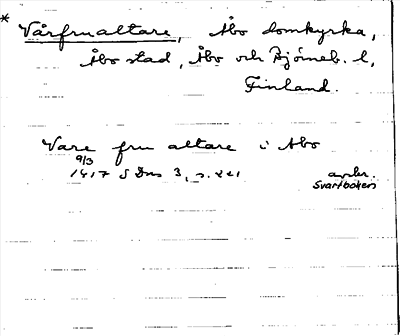 * Vårfrualtare, Åbo domkyrka,
Åbo stad, Åbo och Björneb. l,
Finland.
Vare fru altare i Abo
9/3
1417 SDns 3, s. 221 avskr.
Svartboken